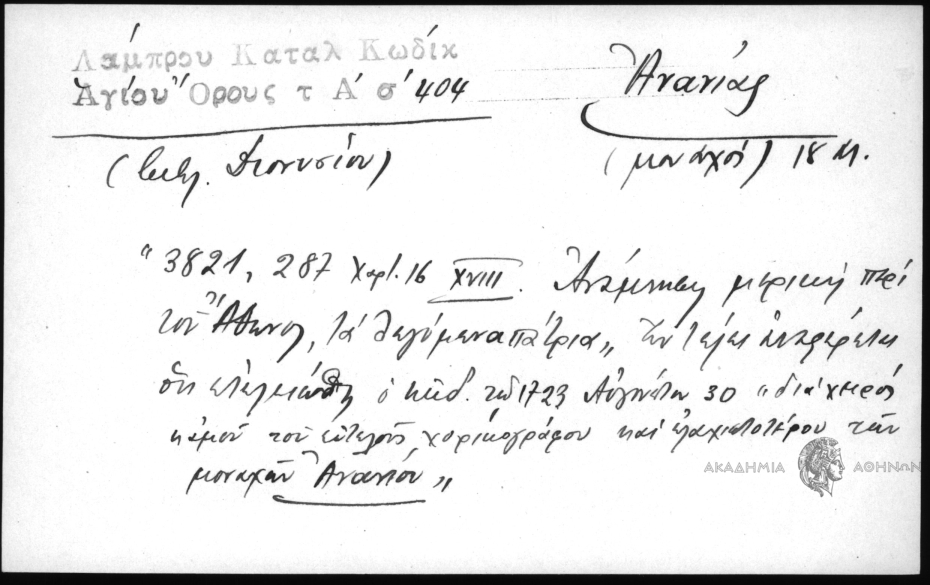 Λάμπρου Καταλ Κωδίκ
Ἁγίου Ὄρους τ Α΄ σ΄ 404
Ἀνανίας
(βιβλ. Διονυσίου)
(μοναχός) 18 αἰ.
"3821, 287 Χαρτ. 16 XVIII. Ἀνάμνησις μερική περί
τοῦ Ἄθωνος, τά λεγόμενα πάτρια,, Ἐν τέλει ἀναφέρεται
ὅτι ἐτελειώθη ὁ κῶδ. τῷ 1723 Αὐγούστου 30 "διά χειρός
κἀμοῦ τοῦ εὐτελοῦς χωρικογράφου καί ἐλαχιστοτέρου τῶν
μοναχῶν Ἀνανίου,,
ΑΚΑΔΗΜΙΑ ΑΘΗΝΩΝ